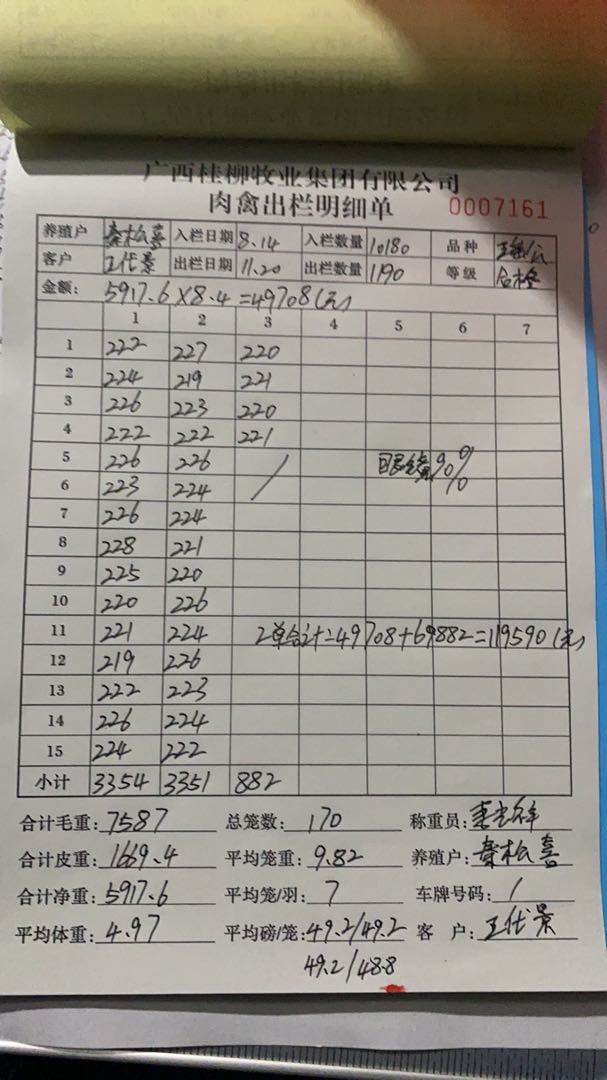 广西桂柳牧业集团有限公司
肉禽出栏明细单 0007161
养殖户 秦松喜 入栏日期 8.14 入栏数量 10180 品种
客户 王代景 出栏日期 11.20 出栏数量 1190 等级 合格
金额: 5917.6×8.4=49708(元)
1 2 3 4 5 6 7
1 222 227 220
2 224 219 221
3 226 223 220
4 222 222 221
5 226 226 / 90%
6 223 224
7 226 224
8 228 221
9 225 220
10 220 226
11 221 224 2单合计=49708+69882=119590(元)
12 219 226
13 222 223
14 226 224
15 224 222
小计 3354 3351 882
合计毛重: 7587 总笼数: 170 称重员:
合计皮重: 1669.4 平均笼重: 9.82 养殖户: 秦松喜
合计净重: 5917.6 平均笼/羽: 7 车牌号码: /
平均体重: 4.97 平均磅/笼: 49.2/49.2 客 户: 王代景
49.2/48.8